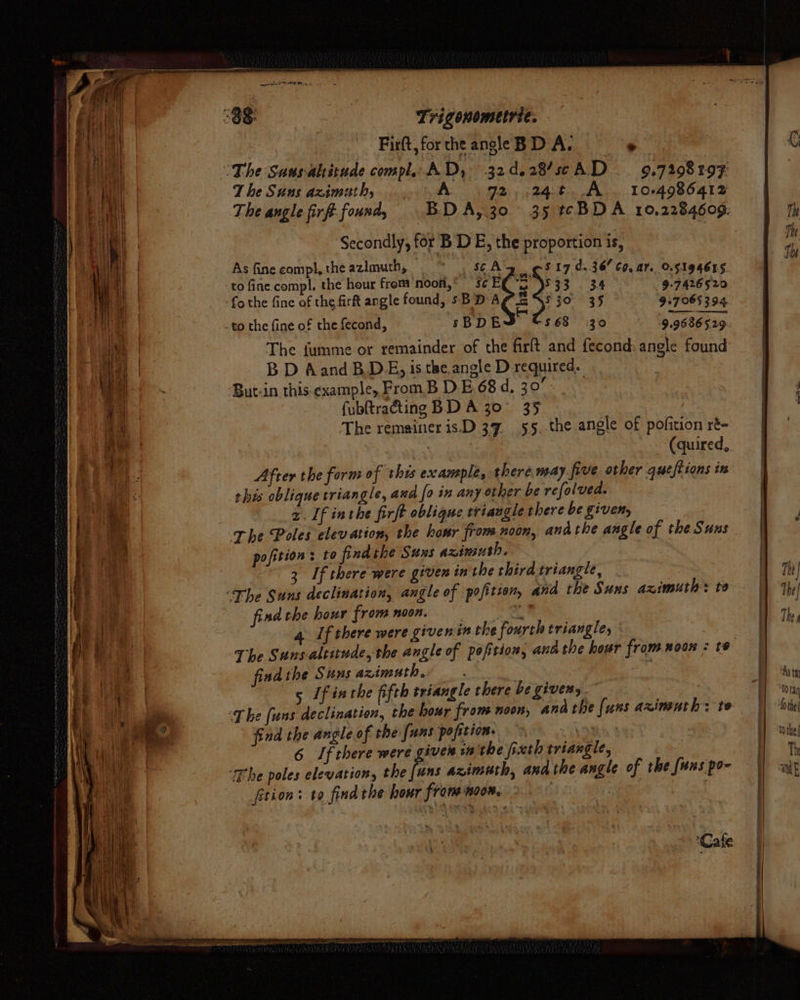 38 Trigonometrie.
Firſt, for the angle B D A.
The Suns altitude compl. A D, 32 d. 28′ sc A D 9.7298197
The Suns azimuth, A 72 24 t A 10.4986412
The angle firſt found, B D A, 30 35 tc B D A 10.2284609.
Secondly, for B D E, the proportion is,
As ſine compl. the azimuth, sc A s 17 d. 36′ co. ar. 0.5194615
to ſine compl. the hour from noon, sc E s 33 34 9.7426520
ſo the ſine of the firſt angle found, s B D A s 30 35 9.7065394
to the ſine of the ſecond, s B D E s 68 30 9.9686529
The ſumme or remainder of the firſt and ſecond angle found
B D A and B D E, is the angle D required.
But in this example, From B D E 68 d. 30′
ſubſtracting B D A 30 35
The remainer is D 37 55 the angle of poſition re-
(quired,
After the form of this example, there may five other queſtions in
this oblique triangle, and ſo in any other be reſolved.
2. If in the firſt oblique triangle there be given,
The Poles elevation, the hour from noon, and the angle of the Suns
poſition: to find the Suns azimuth.
3 If there were given in the third triangle,
The Suns declination, angle of poſition, and the Suns azimuth: to
find the hour from noon.
4 If there were given in the fourth triangle,
The Suns altitude, the angle of poſition, and the hour from noon: to
find the Suns azimuth.
5 If in the fifth triangle there be given,
The ſuns declination, the hour from noon, and the ſuns azimuth: to
find the angle of the ſuns poſition.
6 If there were given in the ſixth triangle,
The poles elevation, the ſuns azimuth, and the angle of the ſuns po-
ſition: to find the hour from noon.
Caſe